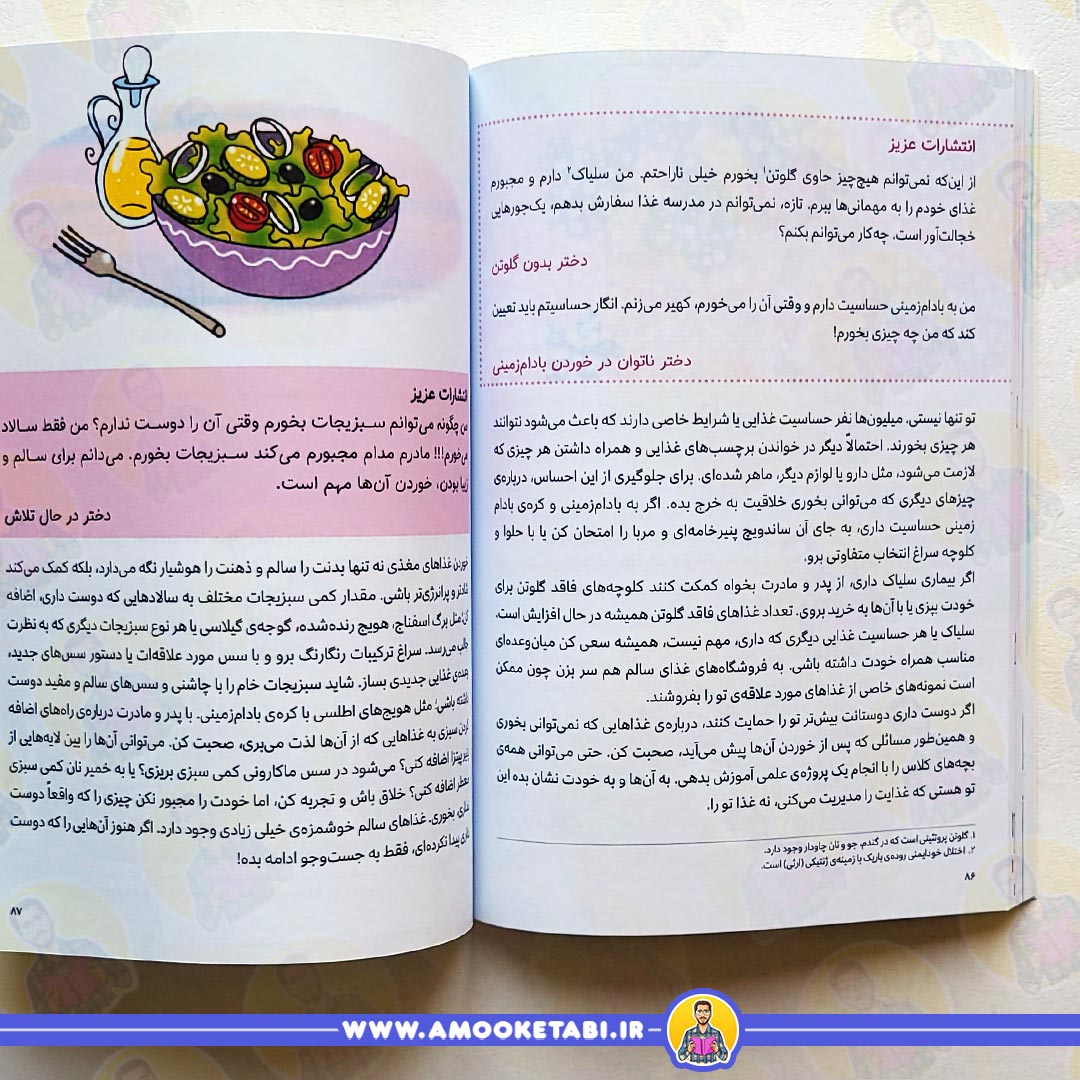 انتشارات عزیز
از این‌که نمی‌توانم هیچ‌چیز حاوی گلوتن۱ بخورم خیلی ناراحتم. من سلیاک۲ دارم و مجبورم
غذای خودم را به مهمانی‌ها ببرم. تازه، نمی‌توانم در مدرسه غذا سفارش بدهم، یک‌جورهایی
خجالت‌آور است. چه‌کار می‌توانم بکنم؟
دختر بدون گلوتن
من به بادام‌زمینی حساسیت دارم و وقتی آن را می‌خورم، کهیر می‌زنم. انگار حساسیتم باید تعیین
کند که من چه چیزی بخورم!
دختر ناتوان در خوردن بادام‌زمینی
تو تنها نیستی. میلیون‌ها نفر حساسیت غذایی یا شرایط خاصی دارند که باعث می‌شود نتوانند
هر چیزی بخورند. احتمالاً دیگر در خواندن برچسب‌های غذایی و همراه داشتن هر چیزی که
لازمت می‌شود، مثل دارو یا لوازم دیگر، ماهر شده‌ای. برای جلوگیری از این احساس، درباره‌ی
چیزهای دیگری که می‌توانی بخوری خلاقیت به خرج بده. اگر به بادام‌زمینی و کره‌ی بادام
زمینی حساسیت داری، به جای آن ساندویچ پنیرخامه‌ای و مربا را امتحان کن یا با حلوا و
کلوچه سراغ انتخاب متفاوتی برو.
اگر بیماری سلیاک داری، از پدر و مادرت بخواه کمکت کنند کلوچه‌های فاقد گلوتن برای
خودت بپزی یا با آن‌ها به خرید بروی. تعداد غذاهای فاقد گلوتن همیشه در حال افزایش است.
سلیاک یا هر حساسیت غذایی دیگری که داری، مهم نیست، همیشه سعی کن میان‌وعده‌ای
مناسب همراه خودت داشته باشی. به فروشگاه‌های غذای سالم هم سر بزن چون ممکن
است نمونه‌های خاصی از غذاهای مورد علاقه‌ی تو را بفروشند.
اگر دوست داری دوستانت بیش‌تر تو را حمایت کنند، درباره‌ی غذاهایی که نمی‌توانی بخوری
و همین‌طور مسائلی که پس از خوردن آن‌ها پیش می‌آید، صحبت کن. حتی می‌توانی همه‌ی
بچه‌های کلاس را با انجام یک پروژه‌ی علمی آموزش بدهی. به آن‌ها و به خودت نشان بده این
تو هستی که غذایت را مدیریت می‌کنی، نه غذا تو را.
۱. گلوتن پروتئینی است که در گندم، جو و نان چاودار وجود دارد.
۲. اختلال خودایمنی روده‌ی باریک با زمینه‌ی ژنتیکی (ارثی) است.
۸۶
انتشارات عزیز
من چگونه می‌توانم سبزیجات بخورم وقتی آن را دوست ندارم؟ من فقط سالاد
می‌خورم!!! مادرم مدام مجبورم می‌کند سبزیجات بخورم. می‌دانم برای سالم و
زیبا بودن، خوردن آن‌ها مهم است.
دختر در حال تلاش
خوردن غذاهای مغذی نه تنها بدنت را سالم و ذهنت را هوشیار نگه می‌دارد، بلکه کمک می‌کند
شادتر و پرانرژی‌تر باشی. مقدار کمی سبزیجات مختلف به سالادهایی که دوست داری، اضافه
کن؛ مثل برگ اسفناج، هویج رنده‌شده، گوجه‌ی گیلاسی یا هر نوع سبزیجات دیگری که به نظرت
جالب می‌رسد. سراغ ترکیبات رنگارنگ برو و با سس مورد علاقه‌ات یا دستور سس‌های جدید،
وعده‌ی غذایی جدیدی بساز. شاید سبزیجات خام را با چاشنی و سس‌های سالم و مفید دوست
داشته باشی؛ مثل هویج‌های اطلسی با کره‌ی بادام‌زمینی. با پدر و مادرت درباره‌ی راه‌های اضافه
کردن سبزی به غذاهایی که از آن‌ها لذت می‌بری، صحبت کن. می‌توانی آن‌ها را بین لایه‌هایی از
پنیر پیتزا اضافه کنی؟ می‌شود در سس ماکارونی کمی سبزی بریزی؟ یا به خمیر نان کمی سبزی
معطر اضافه کنی؟ خلاق باش و تجربه کن، اما خودت را مجبور نکن چیزی را که واقعاً دوست
نداری بخوری. غذاهای سالم خوشمزه‌ی خیلی زیادی وجود دارد. اگر هنوز آن‌هایی را که دوست
داری پیدا نکرده‌ای، فقط به جست‌وجو ادامه بده!
۸۷
WWW.AMOOKETABI.IR